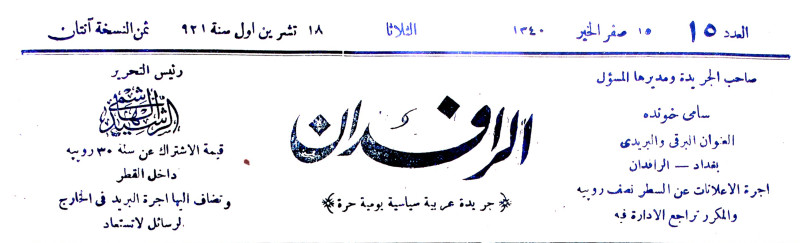 العدد ١٥ ١٥ صفر الخير ١٣٤٠ الثلاثا ١٨ تشرين اول سنة ٩٢١ ثمن النسخة آنتان
صاحب الجريدة ومديرها المسؤل
سامى خونده
العنوان البرقى والبريدى
بغداد — الرافدان
اجرة الاعلانات عن السطر نصف روبيه
والمكرر تراجع الادارة فيه
الرافدان
جريدة عربية سياسية يومية حرة
رئيس التحرير
الرشيد الهاشمي
قيمة الاشتراك عن سنة ٣٠ روبيه
داخل القطر
وتضاف اليها اجرة البريد فى الخارج
لرسائل لاتستعاد